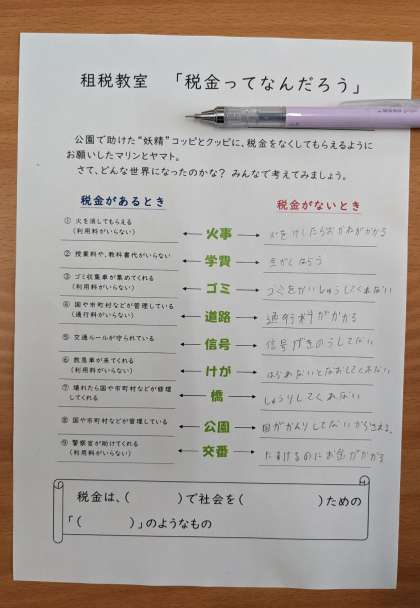 租税教室 「税金ってなんだろう」
公園で助けた“妖精”コッピとクッピに、税金をなくしてもらえるように
お願いしたマリンとヤマト。
さて、どんな世界になったのかな? みんなで考えてみましょう。
税金があるとき
税金がないとき
① 火を消してもらえる
(利用料がいらない)
火事
火をけしたらおかねがかかる
② 授業料や、教科書代がいらない
学費
③ ゴミ収集車が集めてくれる
(利用料がいらない)
ゴミ
ゴミをかいしゅうしてくれない
④ 国や市町村などが管理している
(通行料がいらない)
道路
通行料がかかる
⑤ 交通ルールが守られている
信号
信号がきのうしてない
⑥ 救急車が来てくれる
(利用料がいらない)
けが
はらわないとなおしてくれない
⑦ 壊れたら国や市町村などが修理
してくれる
橋
しゅうりしてくれない
⑧ 国や市町村などが管理している
公園
国がかんりしてないから
⑨ 警察官が助けてくれる
(利用料がいらない)
交番
たすけるのにお金がかかる
税金は、( )で社会を( )ための
「( )」のようなもの